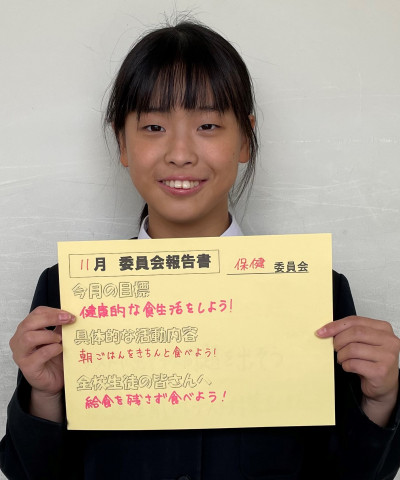 11月 委員会報告書 保健 委員会
今月の目標
健康的な食生活をしよう!
具体的な活動内容
朝ごはんをきちんと食べよう!
全校生徒の皆さんへ
給食を残さず食べよう!